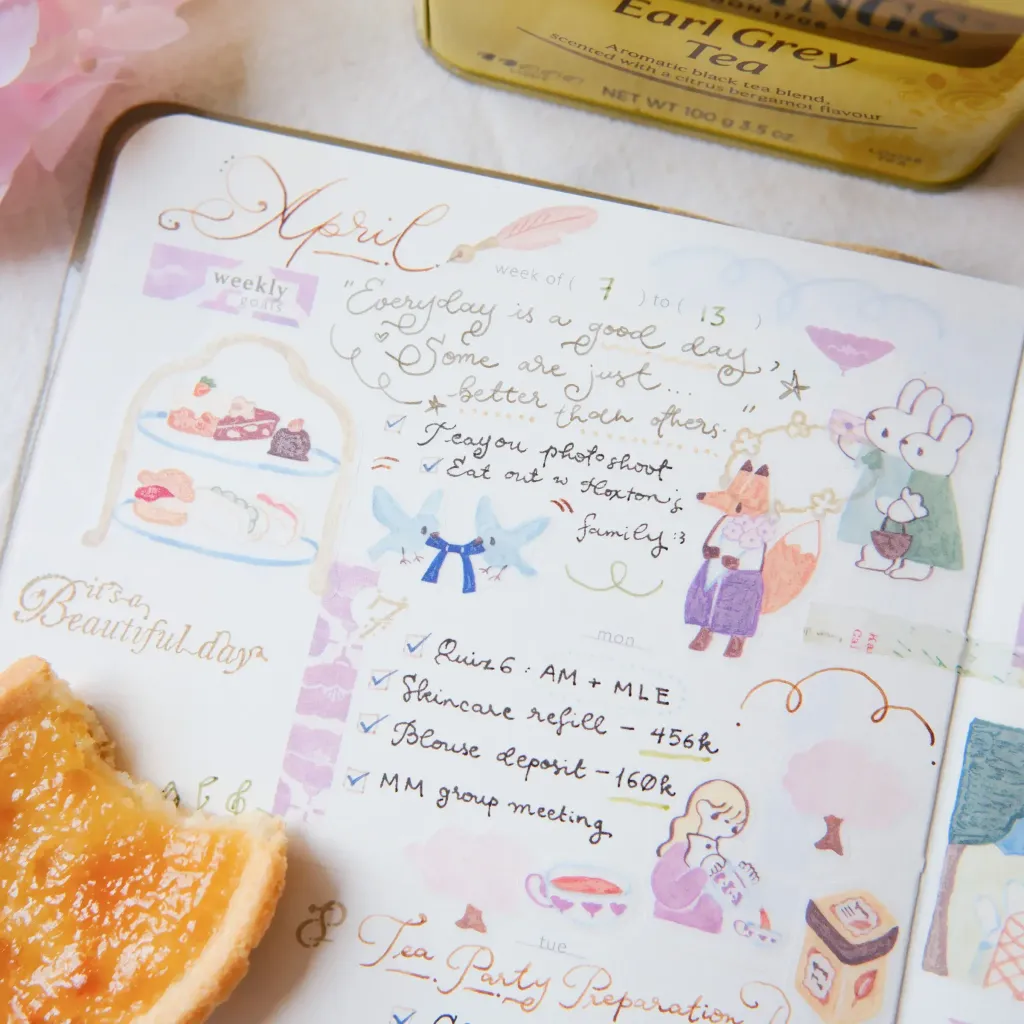 Earl Grey
Tea
Aromatic black tea blend,
scented with a citrus bergamot flavour
NET WT 100 g 3.5 oz
April
week of ( 7 ) to ( 13 )
weekly
goals
"Everyday is a good day,
Some are just...
better than others."
Teayou photoshoot
Eat out w Hoxton's
family :3
it's a
Beautiful day
7
mon
Quiz 6 : AM + MLE
Skincare refill - 456k
Blouse deposit - 160k
MM group meeting
8
tue
Tea Party Preparation